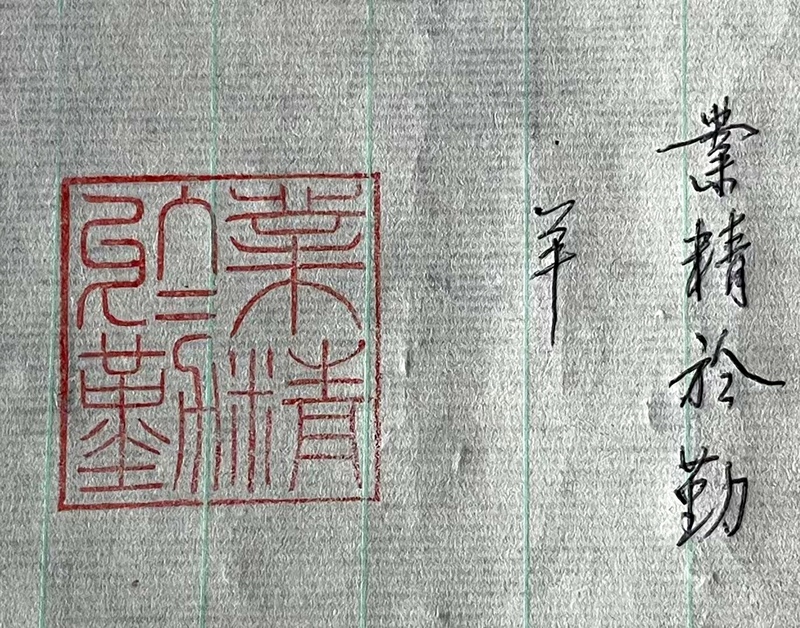 業精於勤
羊
業精
於勤